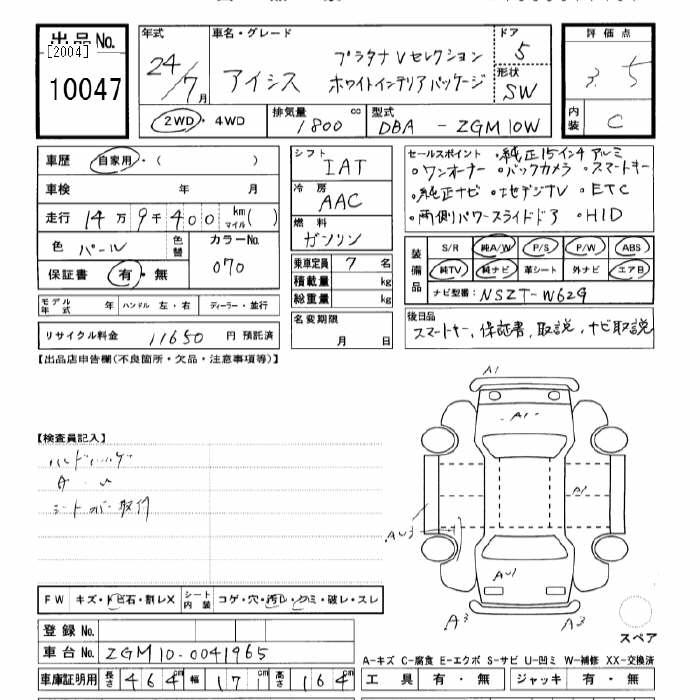 出品No.
[2004]
10047
年式
24/7月
車名・グレード
アイシス
プラタナ Vセレクション
ホワイトインテリアパッケージ
ドア
5
形状
SW
評価点
3.5
内装
C
2WD・4WD
排気量
1800 cc
型式
DBA - ZGM10W
車歴 自家用・( )
車検 年 月
走行 14万9千400 km マイル( )
色 パール
色替
カラーNo.
070
保証書 有・無
シフト
IAT
冷房
AAC
燃料
ガソリン
乗車定員 7 名
積載量 kg
総重量 kg
セールスポイント ・純正15インチアルミ
・ワンオーナー ・バックカメラ ・スマートキー
・純正ナビ ・地デジTV ・ETC
・両側パワースライドドア ・HID
装備品
S/R 純A/W P/S P/W ABS
純TV 純ナビ 革シート 外ナビ エアB
ナビ型番: NSZT-W62G
モデル年式 年 ハンドル 左・右 ディーラー・並行
リサイクル料金 11650 円 預託済
名変期限
月 日
後日品
スマートキー、保証書、取説、ナビ取説
【出品店申告欄(不良箇所・欠品・注意事項等)】
【検査員記入】
シートカバー取付
A1
A1
A1
AU3
AU1
A3
A3
スペア
FW キズ・トビ石・割レX
シート内装 コゲ・穴・汚レ・スレ・破レ・スレ
登録No.
車台No. ZGM10-0041965
車庫証明用 長さ 464 cm 幅 171 cm 高さ 164 cm
A-キズ C-腐食 E-エクボ S-サビ U-凹ミ W-補修 XX-交換済
工具 有・無 ジャッキ 有・無